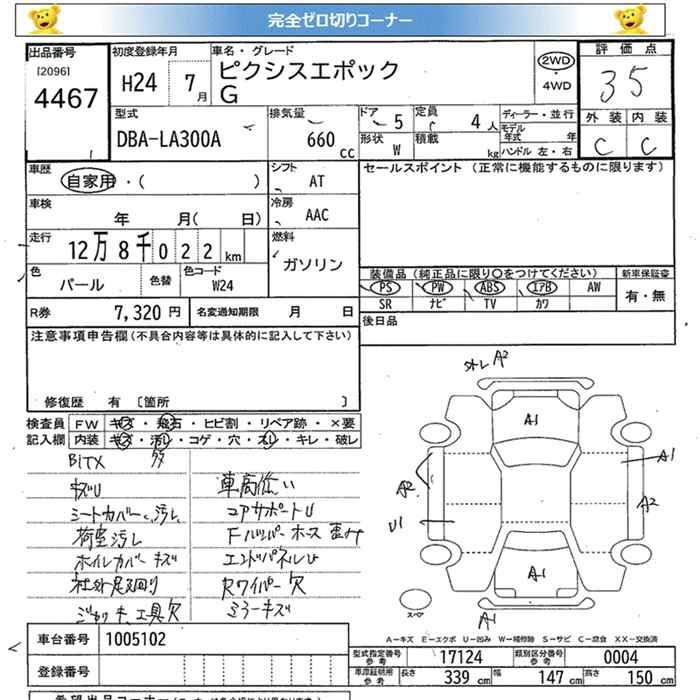 完全ゼロ切りコーナー
出品番号 初度登録年月 車名・グレード 評価点
[2096] 4467 H24 7月 ピクシスエポック 2WD・4WD 35
G
型式 排気量 ドア 定員 ディーラー・並行 外装 内装
DBA-LA300A 660cc 5 4人 モデル年式 年 C C
形状 W 積載 kg ハンドル 左・右
車歴 自家用・( ) シフト AT セールスポイント (正常に機能するものに限ります)
車検 年 月( 日) 冷房 AAC
走行 12万8千022km 燃料 ガソリン
色 パール 色替 色コード W24
装備品 (純正品に限り○をつけてください) 新車保証書
PS PW ABS エアB AW 有・無
SR ナビ TV カワ
R券 7,320円 名変通知期限 月 日
後日品
注意事項申告欄(不具合内容等は具体的に記入して下さい)
修復歴 有 〔箇所 〕
検査員 FW キズ・飛石・ヒビ割・リペア跡・×要
記入欄 内装 キズ・汚レ・コゲ・穴・スレ・キレ・破レ
BITX
キズU 車高低い
シートカバー、汚レ コアサポートU
荷室汚し
ホイルカバーキズ エンドパネルU
社外足廻り Rワイパー欠
ジャッキ、工具欠 ミラーキズ
外レ A2
A1
A1
A2
A2
U1
A1
A1
スペ
A-キズ E-エクボ U-凹み W-補修跡 S-サビ C-腐食 XX-交換済
車台番号 1005102
登録番号
型式指定番号 参考 17124 類別区分番号 参考 0004
車庫証明用 参考 長さ 339 cm 幅 147 cm 高さ 150 cm